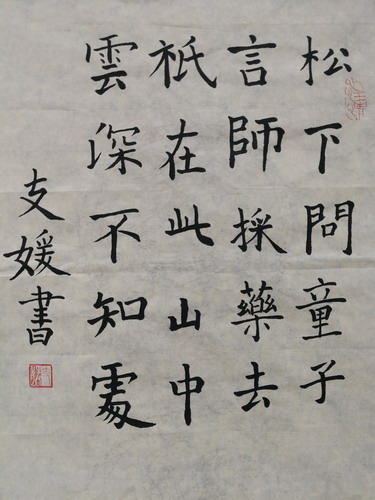 松下問童子
言師採藥去
祇在此山中
雲深不知處
支媛書